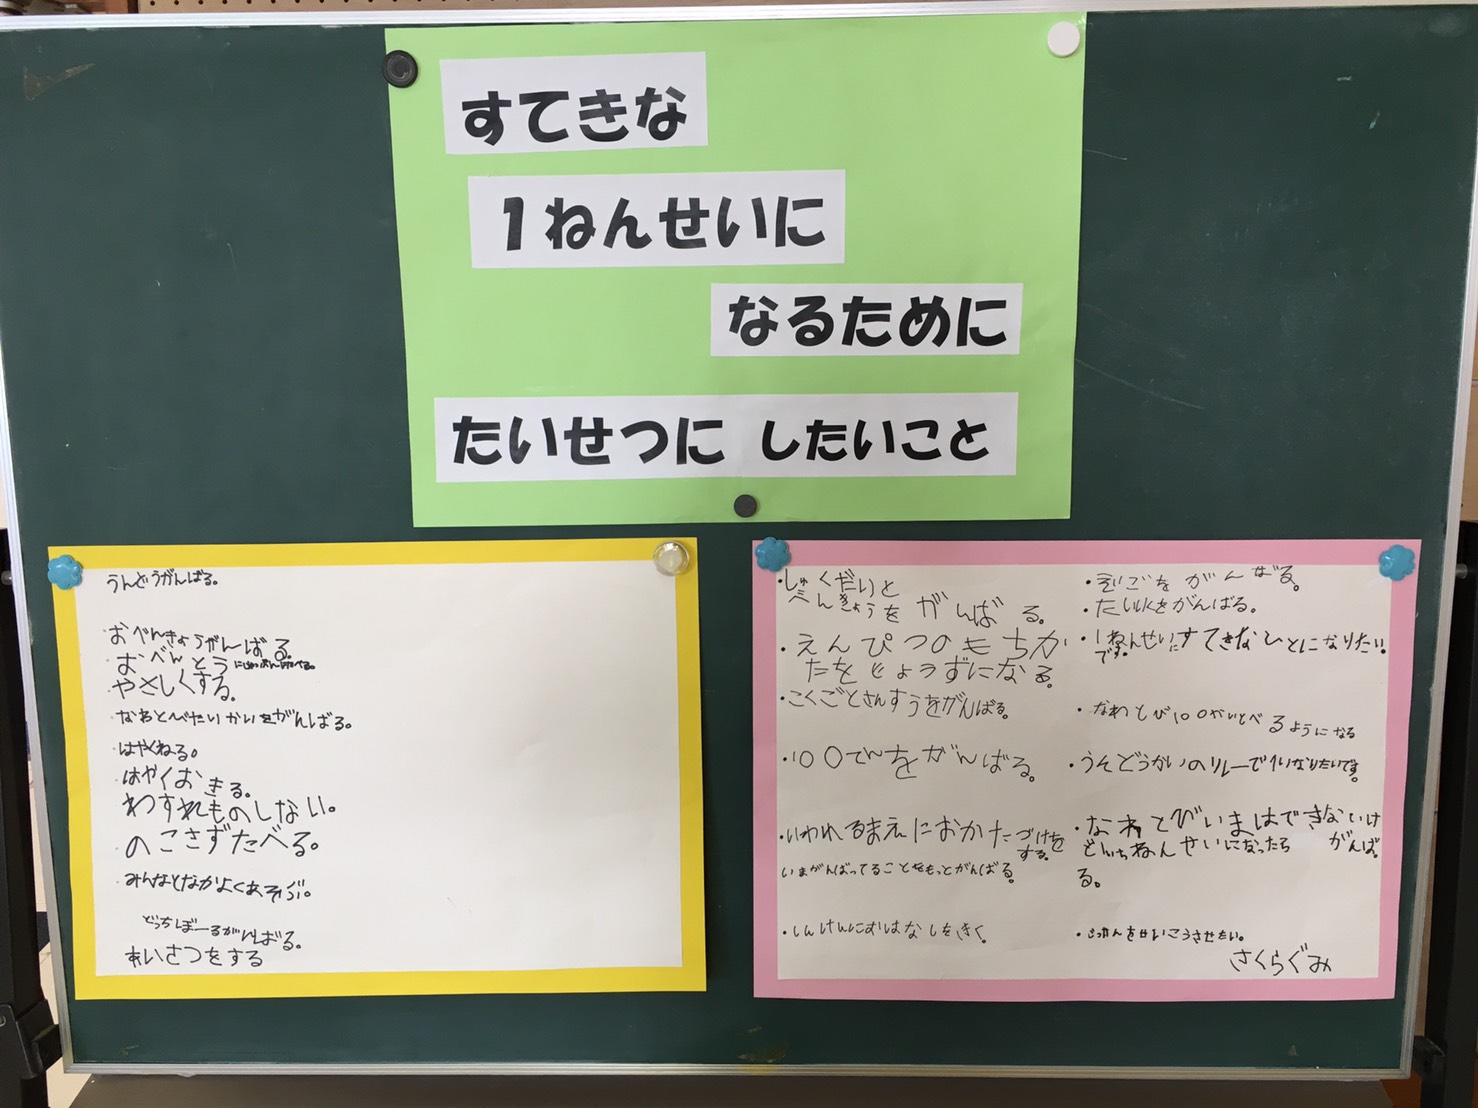 すてきな
1ねんせいに
なるために
たいせつに したいこと
うんどうがんばる。
おべんきょうがんばる。
おべんとう
やさしくする。
なわとびたいかいをがんばる。
はやくねる。
はやくおきる。
わすれものしない。
のこさずたべる。
みんなとなかよくあそぶ。
どっちぼーるがんばる。
あいさつをする
・しゅくだいと
べんきょうをがんばる。
・えんぴつのもちか
たをじょうずになる。
・こくごとさんすうをがんばる。
・100てんをがんばる。
・いわれるまえにおかたづけを
する。
いまがんばってることをもっとがんばる。
・しんけんにおはなしをきく。
・えいごをがんばる。
・たいいくをがんばる。
・1ねんせいにすてきなひとになりたい
です。
・なわとび100かいとべるようになる
・うんどうかいのリレーで1いなりたいです。
・なわとびいまはできないけ
どいちねんせいになったらがんば
る。
・をせいこうさせたい。
さくらぐみ